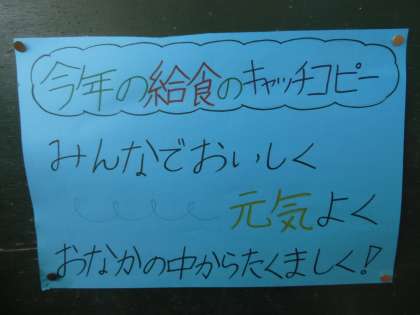 今年の給食のキャッチコピー
みんなでおいしく
元気よく
おなかの中からたくましく!